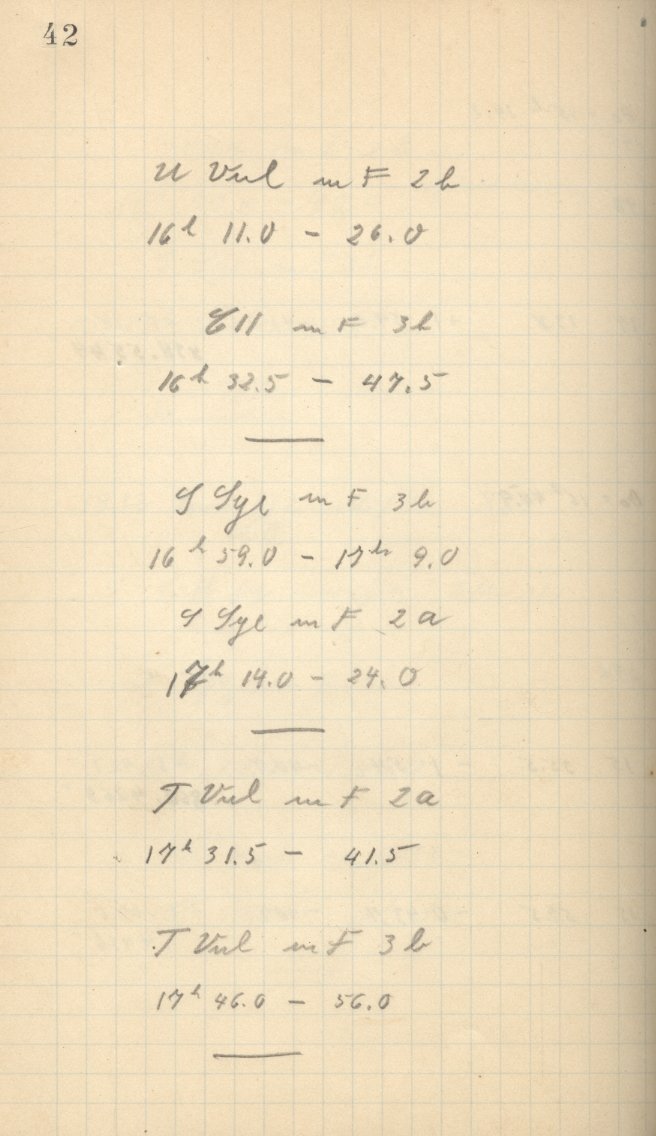 42
U Vul in F 2b
16h 11.0 - 26.0
Ell in F 3b
16h 32.5 - 47.5
S Sge in F 3b
16h 59.0 - 17h 9.0
S Sge in F 2a
17h 14.0 - 24.0
T Vul in F 2a
17h 31.5 - 41.5
T Vul in F 3b
17h 46.0 - 56.0